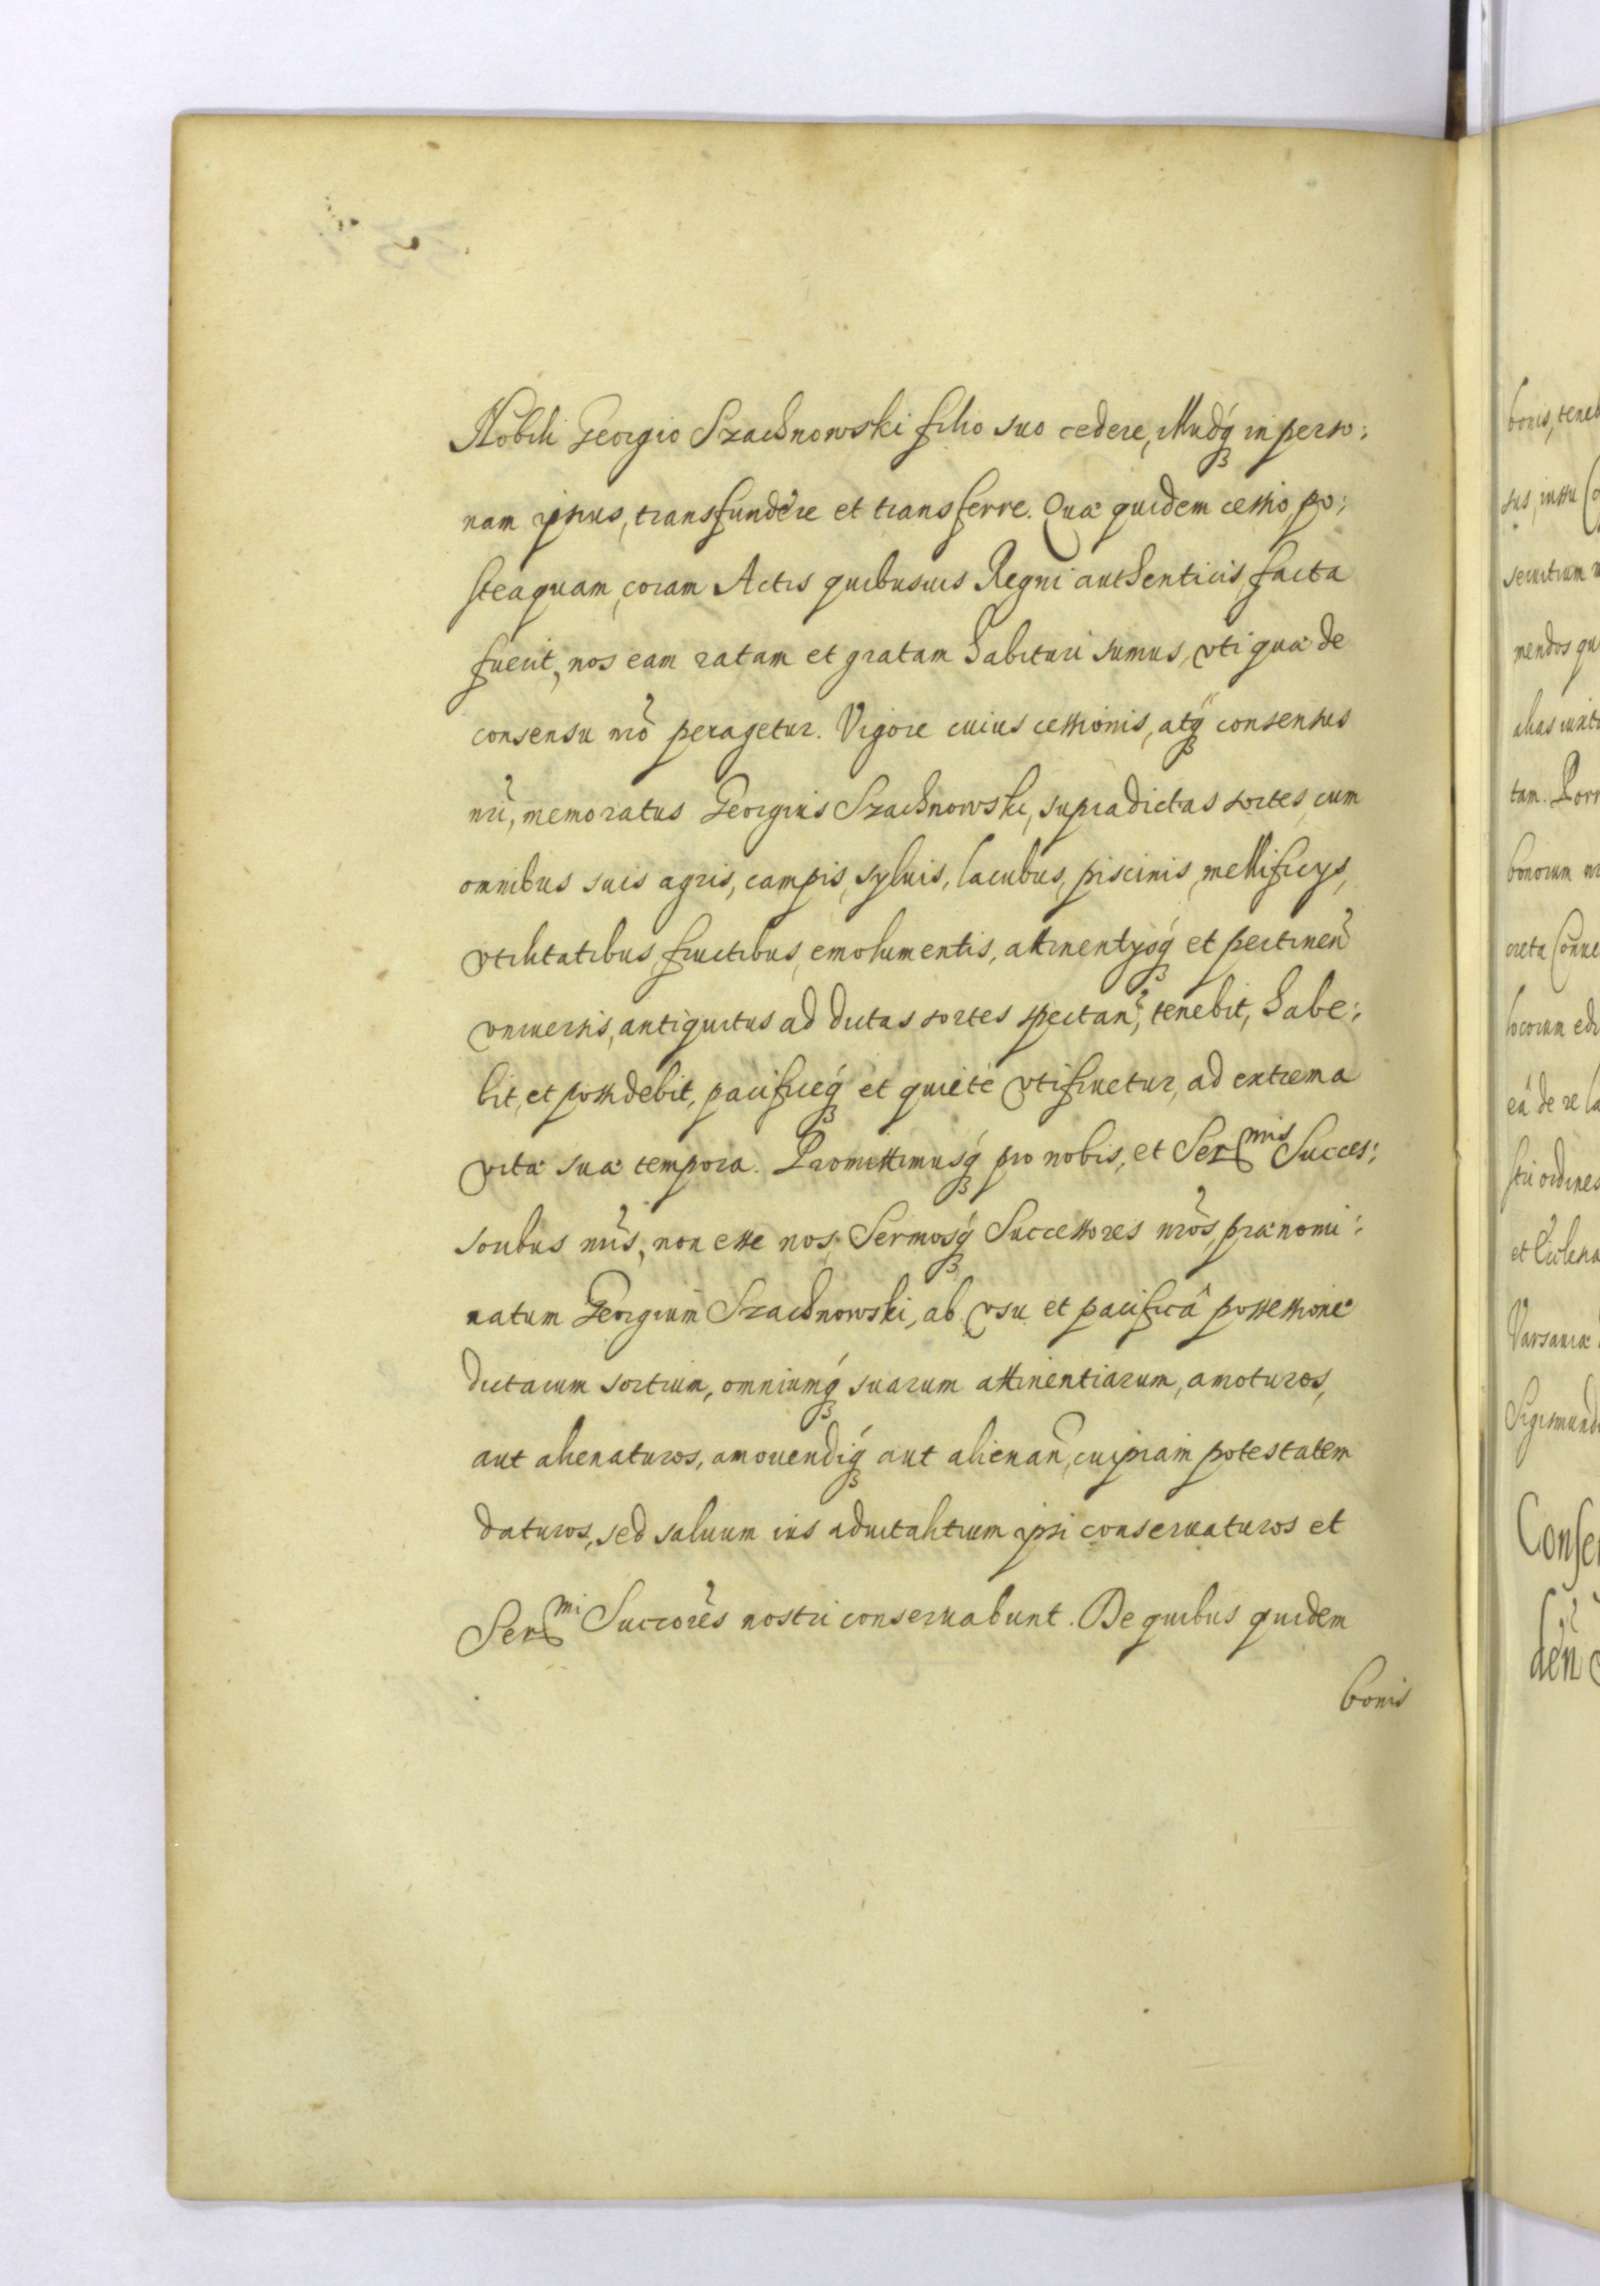 Nobili Georgio Szachnowski filio suo cedere, illudq́ꝫ in perso:
nam ipsius, transfundere et transferre. Quæ quidem cessio, po:
steaquam, coram Actis quibusuis Regni authenticis, facta
fuerit, nos eam ratam et gratam habituri sumus, vti quæ de
consensu nrõ peragetur. Vigore cuius cessionis, atqꝫ consensus
nri̇̃, memoratus Georgius Szachnowski, supradictas sortes, cum
omnibus suis agris, campis, syluis, lacubus, piscinis, mellificys,
vtilitatibus, fructibus, emolumentis, attinentysq́ꝫ et pertineñ
vniuersis, antiquitus ad dictas sortes spectañ, tenebit, habe:
bit, et possidebit, pacificeq́ꝫ et quietè vtifruetur, ad extrema
vitæ suæ tempora. Promittimusq́ꝫ pro nobis, et Ser<sup>mis</sup> Succes:
soribus nrĩs, non esse nos, Sermosq́ꝫ Successores nrõs, prænomi:
natum Georgium Szachnowski, ab vsu et pacificâ possessione
dictarum sortium, omniumq́ꝫ suarum attinentiarum, amoturos,
aut alienaturos, amouendiq́ꝫ aut alienañ, cuipiam potestatem
daturos, sed saluum ius aduitalitium ipsi conseruaturos et
Ser<sup>mi</sup> Succorẽs nostri conseruabunt. De quibus quidem
bonis